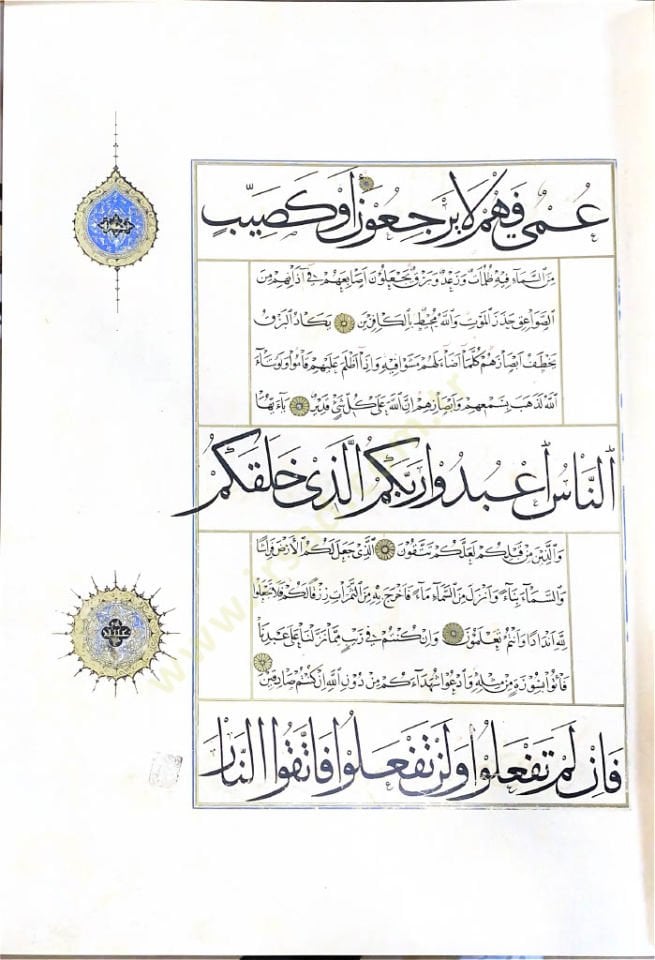 عُمْيٌ فَهُمْ لَا يَرْجِعُونَ أَوْ كَصَيِّبٍ
مِنَ السَّمَاءِ فِيهِ ظُلُمَاتٌ وَرَعْدٌ وَبَرْقٌ يَجْعَلُونَ اَصَابِعَهُمْ فِي اٰذَانِهِمْ مِنَ
الصَّوَاعِقِ حَذَرَ الْمَوْتِ وَاللهُ مُحِيطٌ بِالْكَافِرِينَ يَكَادُ الْبَرْقُ
يَخْطَفُ اَبْصَارَهُمْ كُلَّمَا اَضَاءَ لَهُمْ مَشَوْا فِيهِ وَاِذَا اَظْلَمَ عَلَيْهِمْ قَامُوا وَلَوْ شَاءَ
اللهُ لَذَهَبَ بِسَمْعِهِمْ وَاَبْصَارِهِمْ اِنَّ اللهَ عَلَى كُلِّ شَيْءٍ قَدِيرٌ يَا اَيُّهَا
النَّاسُ اعْبُدُوا رَبَّكُمُ الَّذِي خَلَقَكُمْ
وَالَّذِينَ مِنْ قَبْلِكُمْ لَعَلَّكُمْ تَتَّقُونَ الَّذِي جَعَلَ لَكُمُ الْاَرْضَ فِرَاشًا
وَالسَّمَاءَ بِنَاءً وَاَنْزَلَ مِنَ السَّمَاءِ مَاءً فَاَخْرَجَ بِهِ مِنَ الثَّمَرَاتِ رِزْقًا لَكُمْ فَلَا تَجْعَلُوا
لِلّهِ اَنْدَادًا وَاَنْتُمْ تَعْلَمُونَ وَاِنْ كُنْتُمْ فِي رَيْبٍ مِمَّا نَزَّلْنَا عَلَى عَبْدِنَا
فَأْتُوا بِسُورَةٍ مِنْ مِثْلِهِ وَادْعُوا شُهَدَاءَكُمْ مِنْ دُونِ اللهِ اِنْ كُنْتُمْ صَادِقِينَ
فَاِنْ لَمْ تَفْعَلُوا وَلَنْ تَفْعَلُوا فَاتَّقُوا النَّارَ